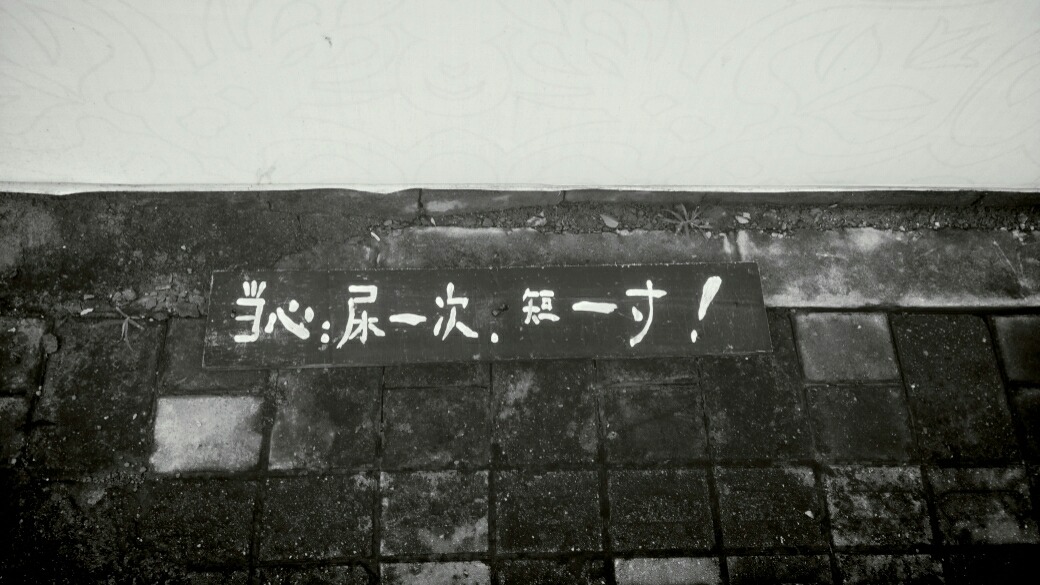 当心:尿一次.短一寸!